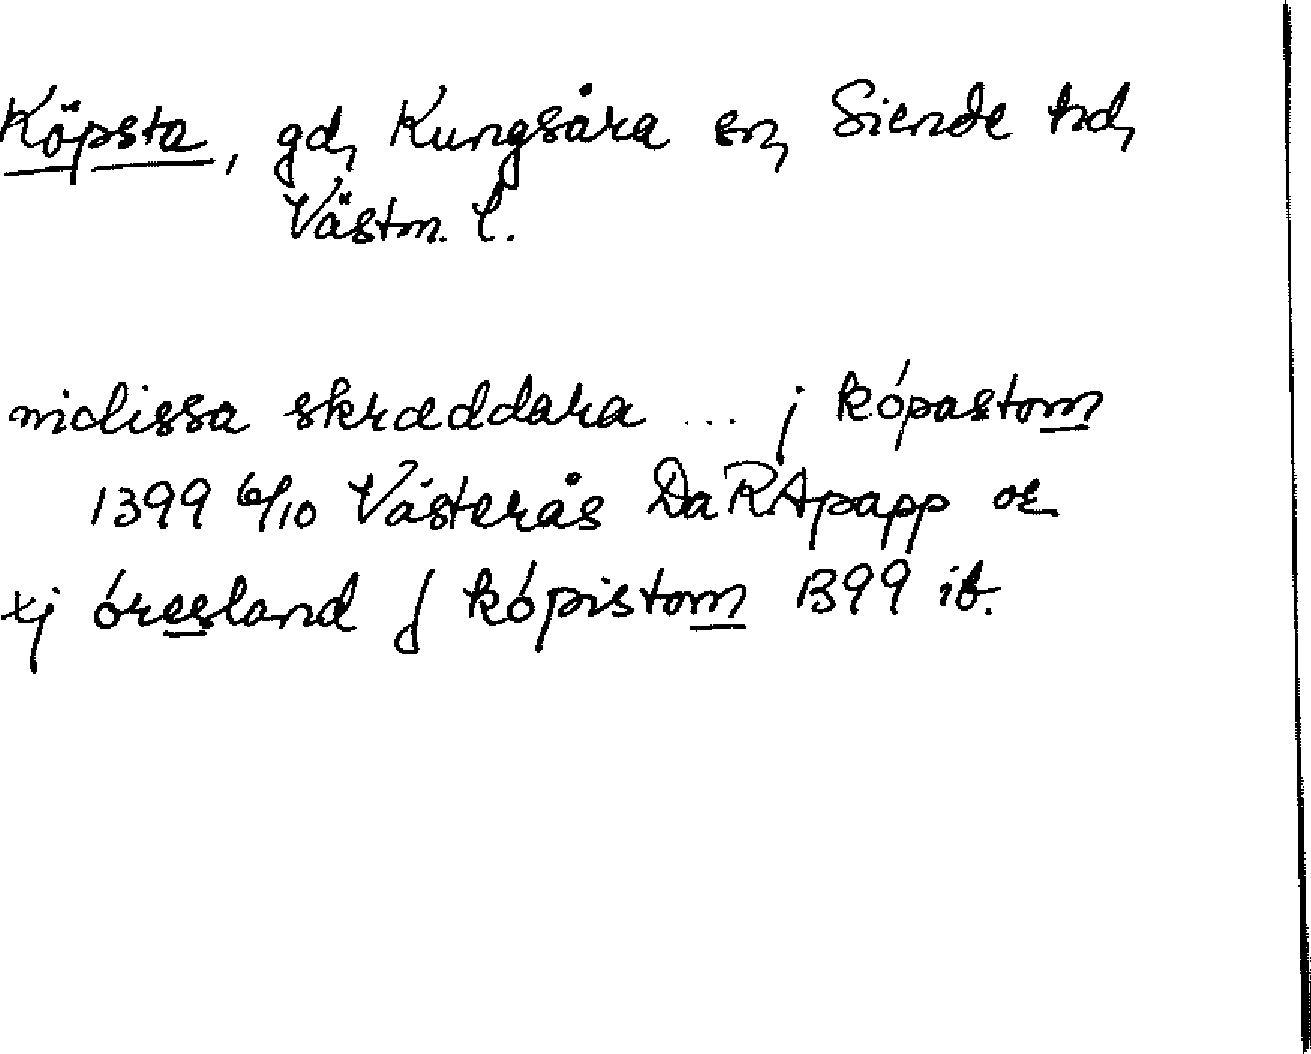 Köpsta, gd, Kungsåra sn, Siende hd,
Västm. l.
niclissa skræddara ... j kópastom
1399 6/10 Västerås Da RApapp or
xj óresland J kópistom 1399 ib.